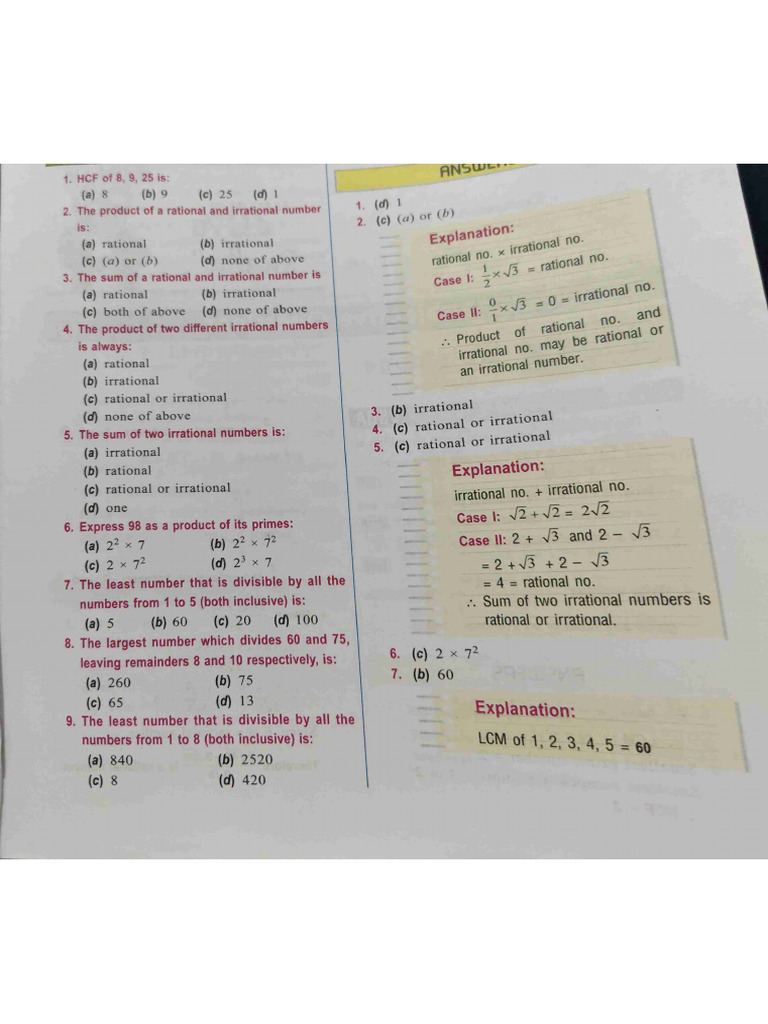 1. HCF of 8, 9, 25 is:
(a) 8 (b) 9 (c) 25 (d) 1
2. The product of a rational and irrational number
is:
(a) rational (b) irrational
(c) (a) or (b) (d) none of above
3. The sum of a rational and irrational number is
(a) rational (b) irrational
(c) both of above (d) none of above
4. The product of two different irrational numbers
is always:
(a) rational
(b) irrational
(c) rational or irrational
(d) none of above
5. The sum of two irrational numbers is:
(a) irrational
(b) rational
(c) rational or irrational
(d) one
6. Express 98 as a product of its primes:
(a) 2² × 7 (b) 2² × 7²
(c) 2 × 7² (d) 2³ × 7
7. The least number that is divisible by all the
numbers from 1 to 5 (both inclusive) is:
(a) 5 (b) 60 (c) 20 (d) 100
8. The largest number which divides 60 and 75,
leaving remainders 8 and 10 respectively, is:
(a) 260 (b) 75
(c) 65 (d) 13
9. The least number that is divisible by all the
numbers from 1 to 8 (both inclusive) is:
(a) 840 (b) 2520
(c) 8 (d) 420
1. (d) 1
2. (c) (a) or (b)
Explanation:
rational no. × irrational no.
Case I: 1/2 × √3 = rational no.
Case II: 0/1 × √3 = 0 = irrational no.
∴ Product of rational no. and
irrational no. may be rational or
an irrational number.
3. (b) irrational
4. (c) rational or irrational
5. (c) rational or irrational
Explanation:
irrational no. + irrational no.
Case I: √2 + √2 = 2√2
Case II: 2 + √3 and 2 − √3
= 2 + √3 + 2 − √3
= 4 = rational no.
∴ Sum of two irrational numbers is
rational or irrational.
6. (c) 2 × 7²
7. (b) 60
Explanation:
LCM of 1, 2, 3, 4, 5 = 60